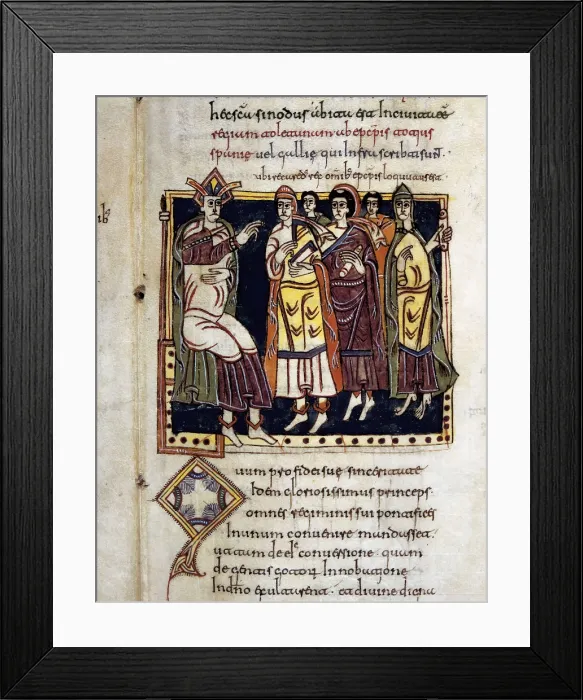 hec scā sinodus abita est In ciuitate
regium toletanum ab epcpis totius
spanie uel gallie qui Infra scribti sunt.
ubi recaredus rex omīb epcpis loquutus est.
uum pro fidei sue sinceritate
Idem gloriosissimus princeps.
omnes regiminis sui pontifices
In unum conuenire mandasset.
ut tam de eius conuersione quam
de gentis gotorum Innobatione
In dno exultarent. et diuine digna